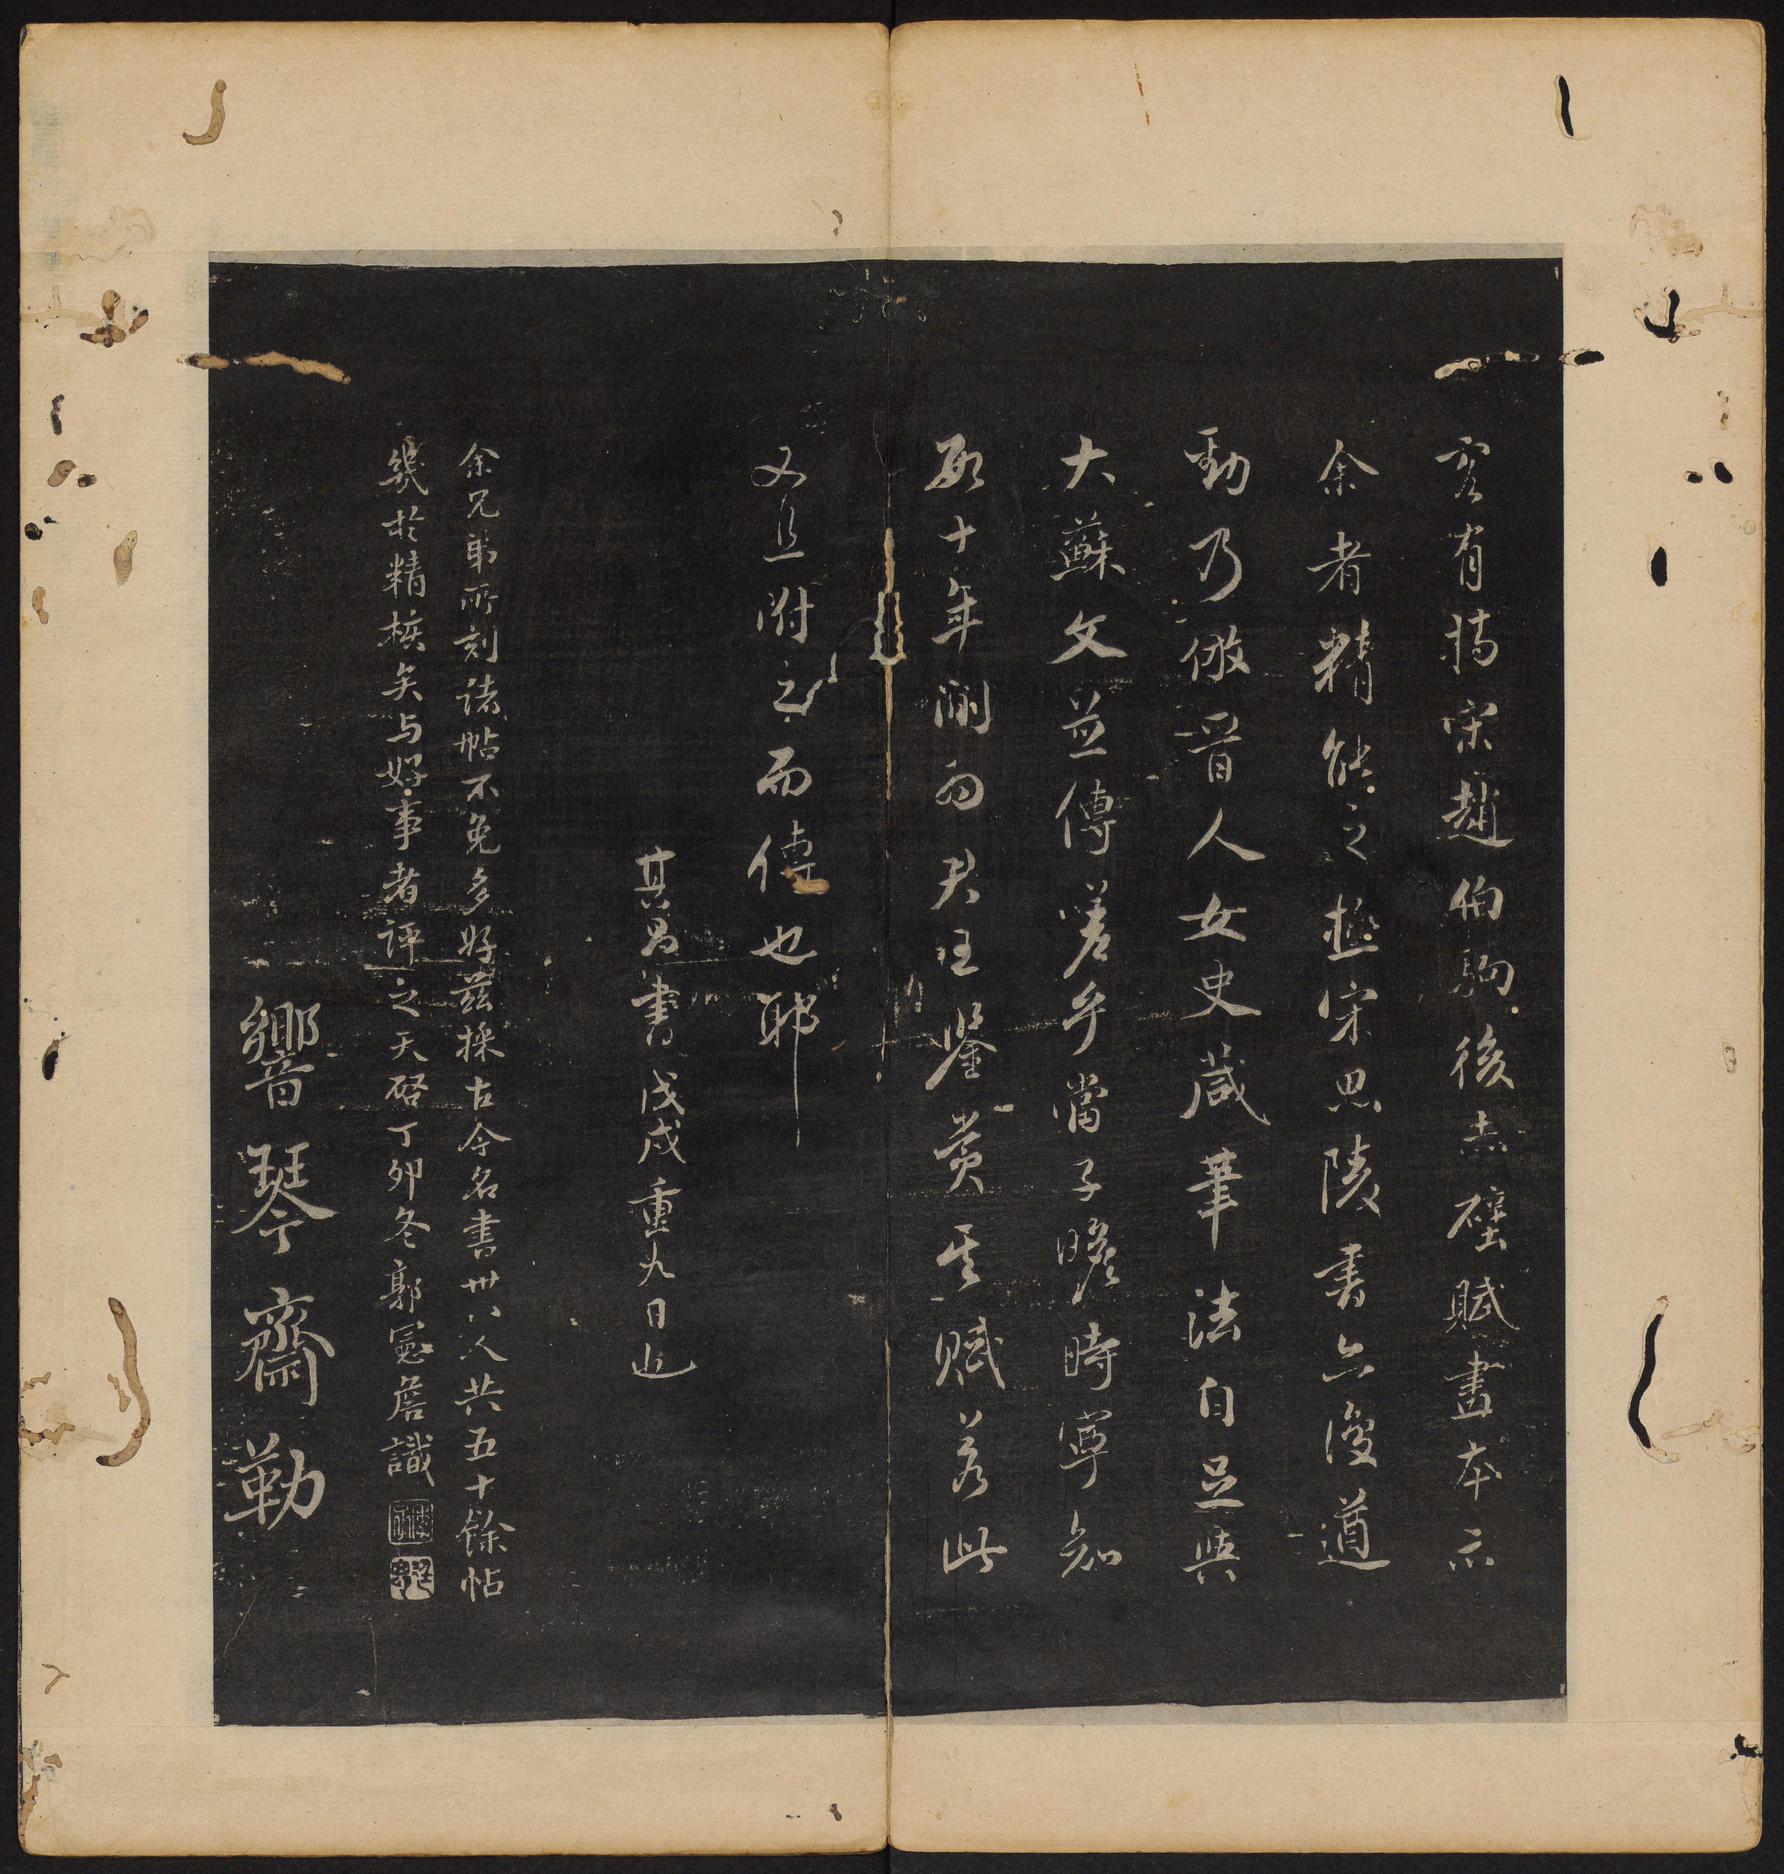 客有持宋趙伯駒後赤壁賦畫本示
余者精能之極宋思陵書亦復遒
動乃倣晉人女史箴筆法自足與
大蘇文並傳嗟乎當子瞻時寧知
數十年間為君王鑒賞其賦若此
又且附之而傳也耶
其昌書戊戌重九日也
余兄弟所刻諸帖不免多好茲採古今名書卅八人共五十餘帖
幾於精核矣与好事者評之天啓丁卯冬郭寘詹識
響琴齋勒